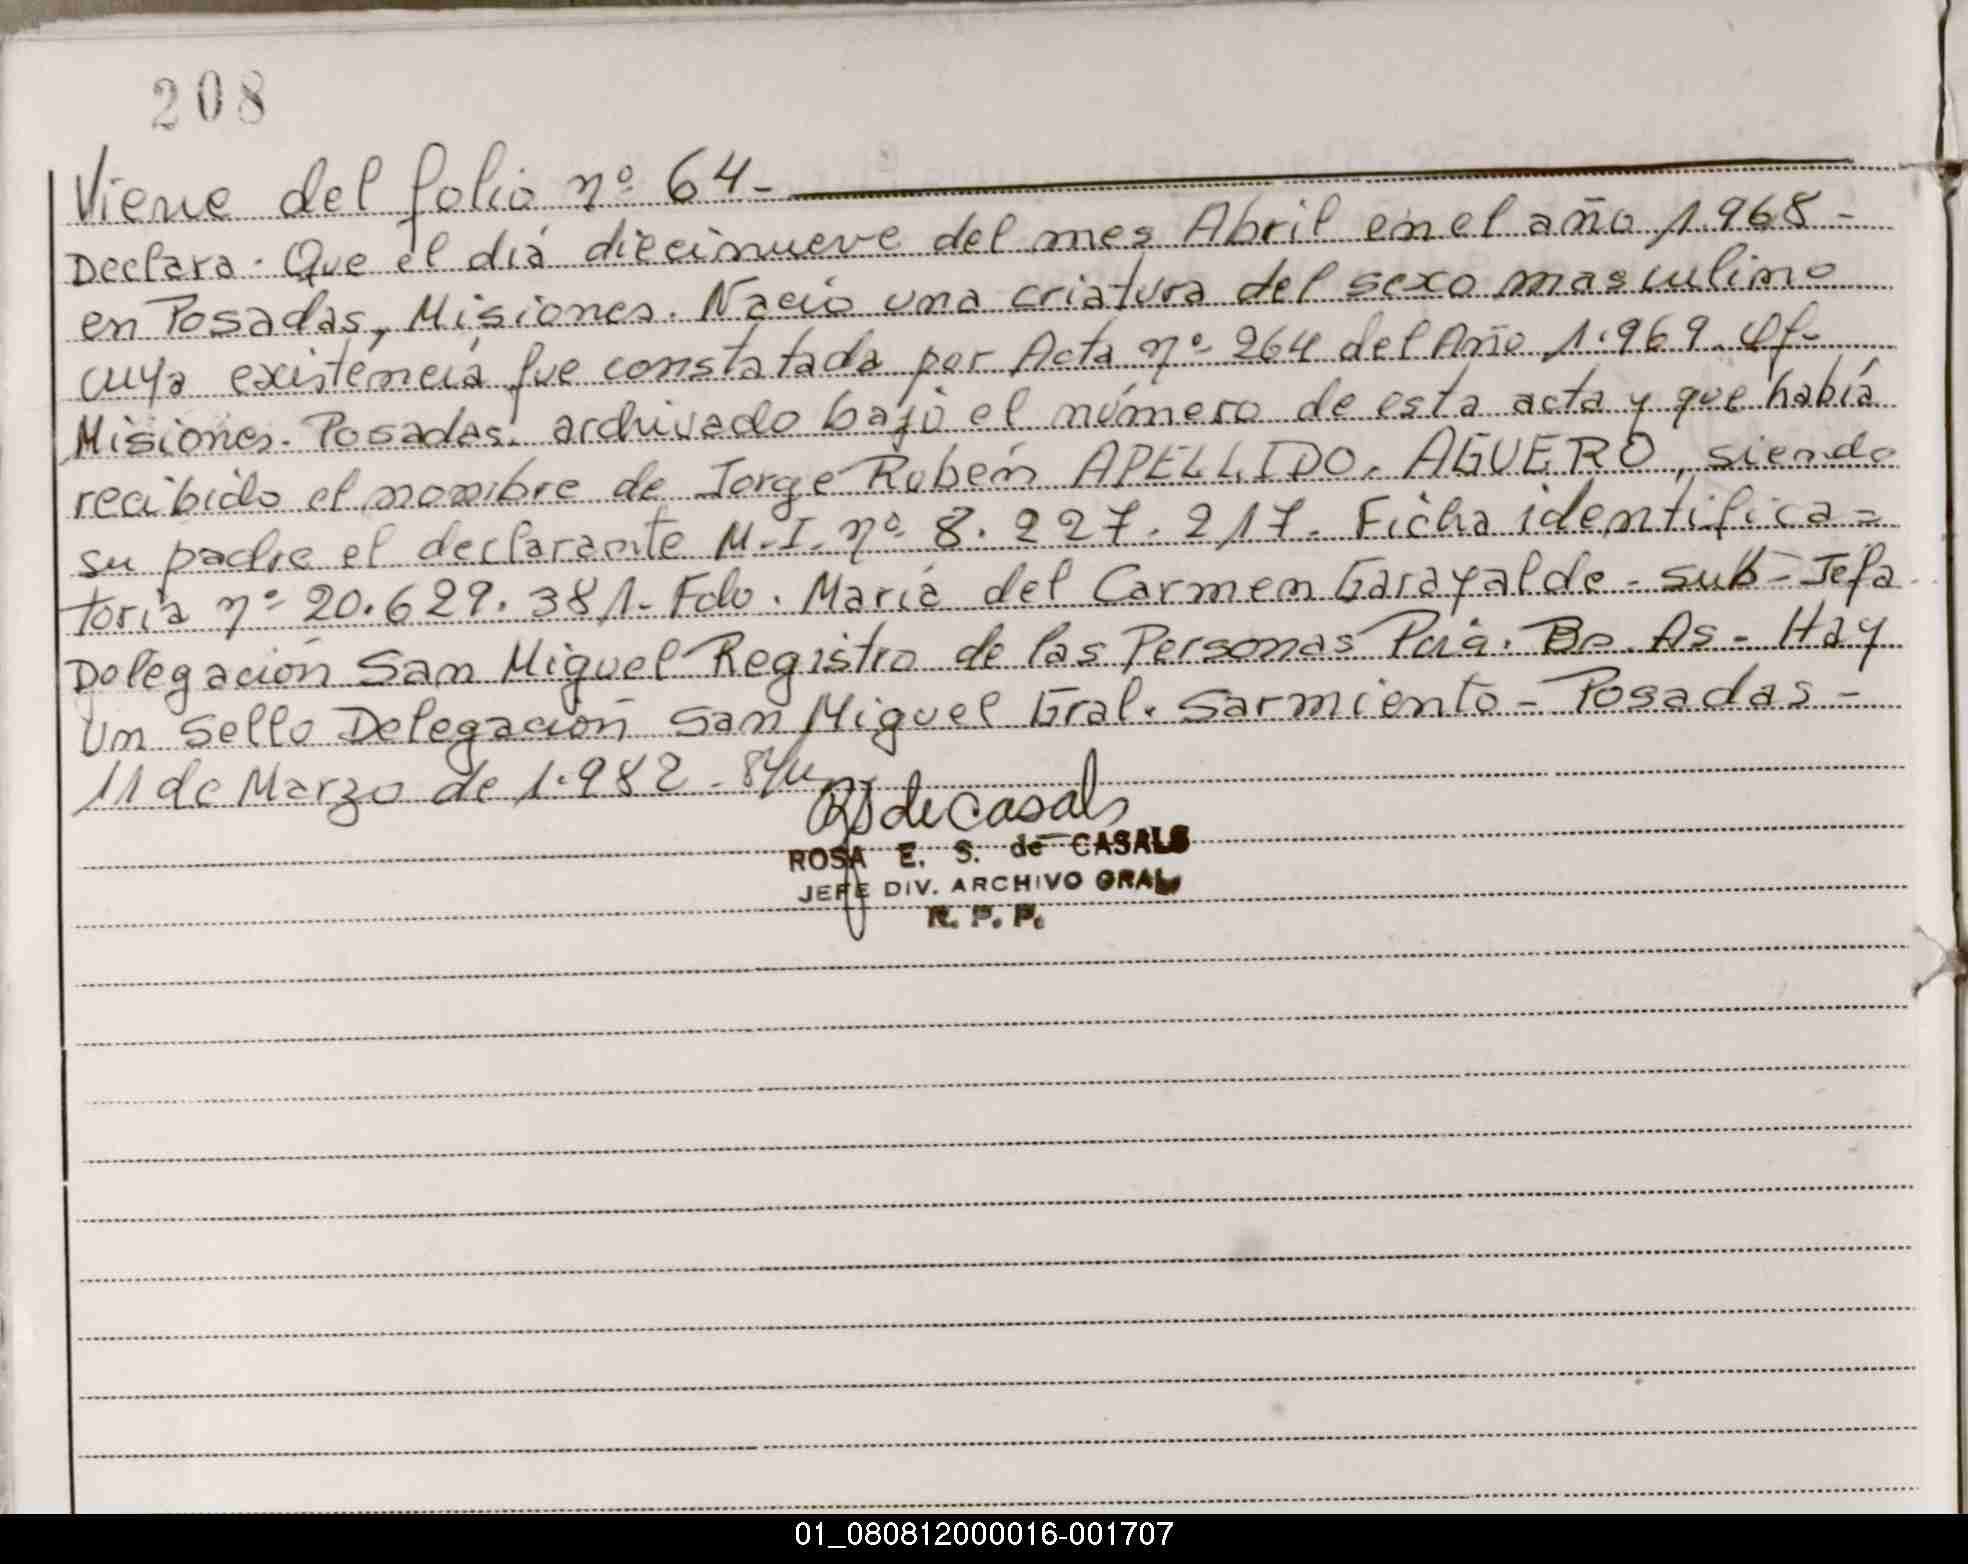 208
Viene del folio nº 64-
Declara. Que el día diecinueve del mes Abril en el año 1.968-
en Posadas, Misiones. Nació una criatura del sexo masculino
cuya existencia fue constatada por Acta nº 264 del Año 1.969. Of-
Misiones. Posadas. archivado bajo el número de esta acta y que había
recibido el nombre de Jorge Rubén APELLIDO. AGUERO, siendo
su padre el declarante M.I. nº 8.227.217. Ficha identifica=
toria nº 20.629.381. Fdo. María del Carmen Garayalde - sub-Jefa
Delegación San Miguel Registro de las Personas Pcia. Bs. As - Hay
un sello Delegación San Miguel Gral. Sarmiento - Posadas -
11 de Marzo de 1.982.
de Casals
ROSA E. S. de CASALS
JEFE DIV. ARCHIVO GRAL
R. P. P.
01_080812000016-001707